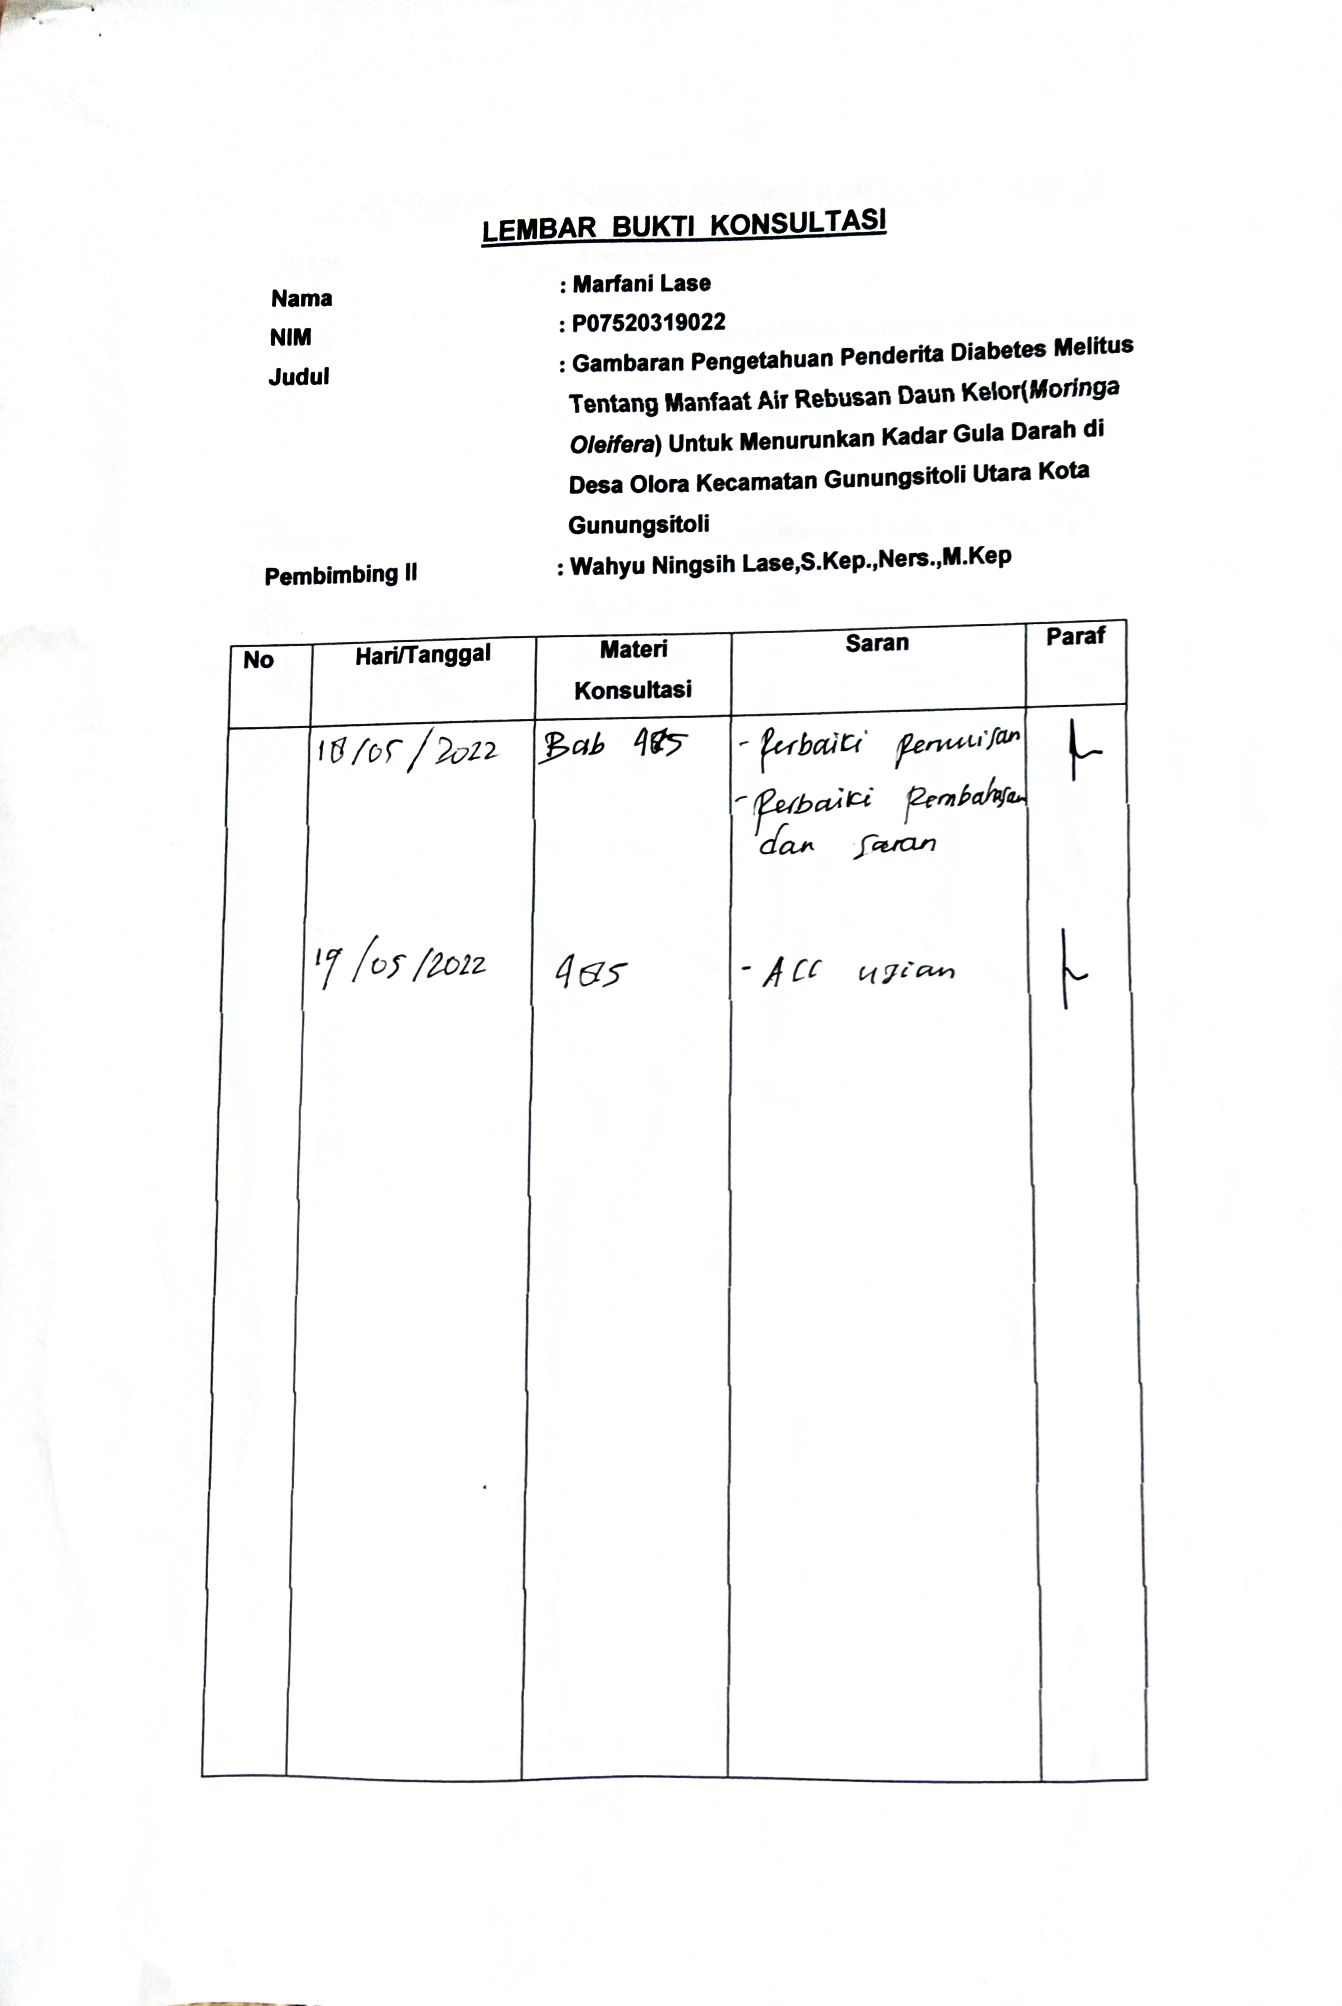 LEMBAR BUKTI KONSULTASI
Nama : Marfani Lase
NIM : P07520319022
Judul : Gambaran Pengetahuan Penderita Diabetes Melitus
Tentang Manfaat Air Rebusan Daun Kelor(Moringa
Oleifera) Untuk Menurunkan Kadar Gula Darah di
Desa Olora Kecamatan Gunungsitoli Utara Kota
Gunungsitoli
Pembimbing II : Wahyu Ningsih Lase,S.Kep.,Ners.,M.Kep
No Hari/Tanggal Materi Saran Paraf
Konsultasi
18/05/2022 Bab 4&5 - Perbaiki Penulisan
- Perbaiki Pembahasan
dan saran
19/05/2022 4&5 - ACC ujian